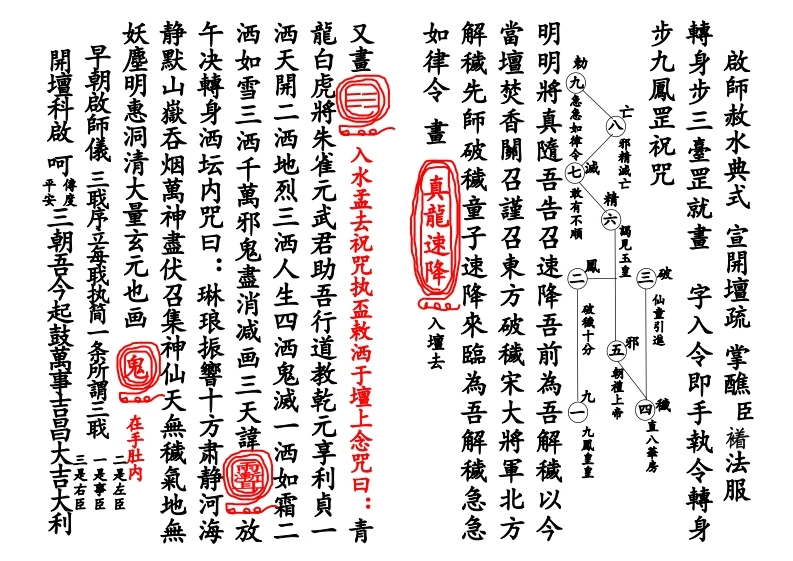 啟師赦水典式 宣開壇疏 掌醮 臣 禇法服
轉身步三臺罡就畫 字入令即手執令轉身
步九鳳罡祝咒
破
三
仙童引進
穢
四
直八華房
亡
八
邪精滅亡
精
六
謁見玉皇
邪
五
朝禮上帝
勅
九
急急如律令
滅
七
敢有不順
鳳
二
破穢十分
九
一
九鳳皇皇
明明將真隨吾告召速降吾前為吾解穢以今
當壇焚香關召謹召東方破穢宋大將軍北方
解穢先師破穢童子速降來臨為吾解穢急急
如律令 畫 真龍速降 入壇去
又畫 三 入水盂去祝咒执盃敕洒于壇上念咒曰：青
龍白虎將朱雀元武君助吾行道教乾元享利貞一
洒天開二洒地烈三洒人生四洒鬼滅一洒如霜二
洒如雪三洒千萬邪鬼盡消减画三天諱 放
午决轉身洒坛内咒曰：琳琅振響十方肃静河海
静默山嶽吞烟萬神盡伏召集神仙天無穢氣地無
妖塵明惠洞清大量玄元也画 鬼 在手肚内
早朝啟師儀 三戢序立每戢执简一条所謂三戢
一是事臣
二是左臣
三是右臣
開壇科啟 呵 傳度 平安 三朝吾今起鼓萬事吉昌大吉大利